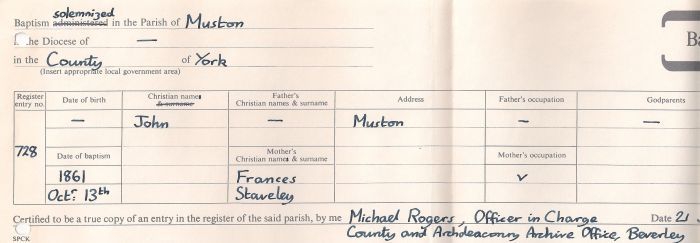 solemnized
Baptism administered in the Parish of Muston
the Diocese of —
in the County of York
(Insert appropriate local government area)
Register entry no. Date of birth Christian names & surname Father's Christian names & surname Address Father's occupation Godparents
— John — Muston — —
728 Date of baptism Mother's Christian names & surname Mother's occupation
1861 Frances
Oct: 13th Staveley
Certified to be a true copy of an entry in the register of the said parish, by me Michael Rogers, Officer in Charge Date 21
SPCK County and Archdeaconry Archive Office, Beverley